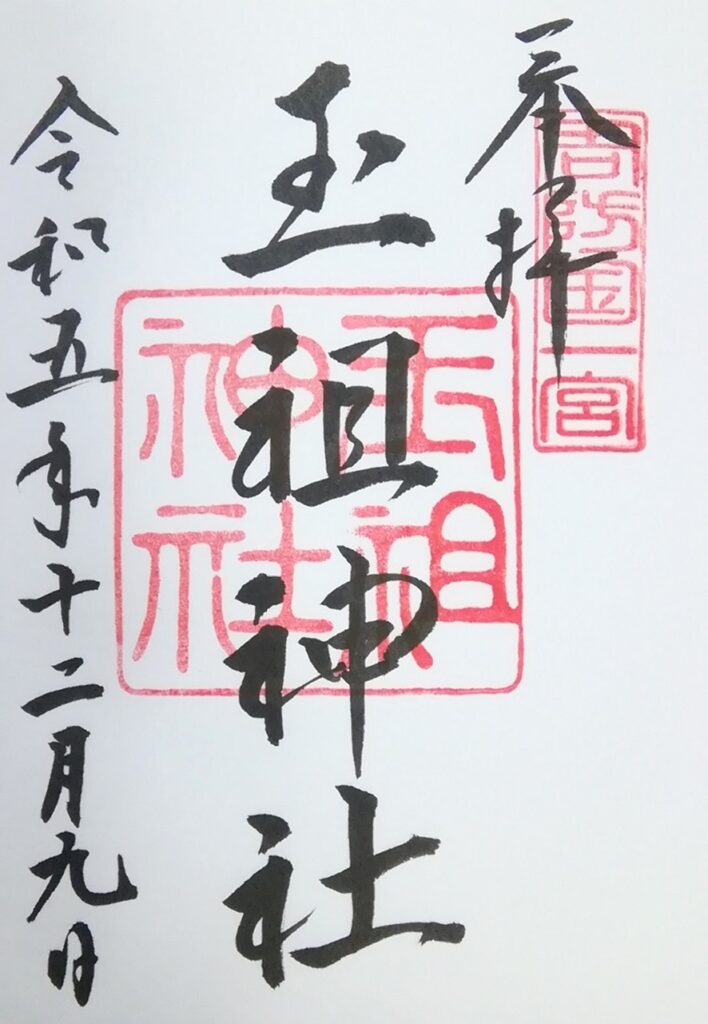 奉拝
周防国一宮
玉祖神社
玉祖神社
令和五年十二月九日